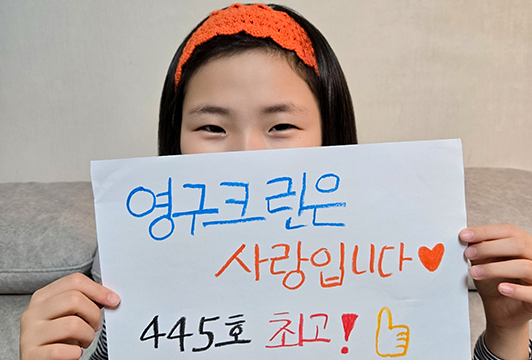 영구크린은
사랑입니다♥
445호 최고!